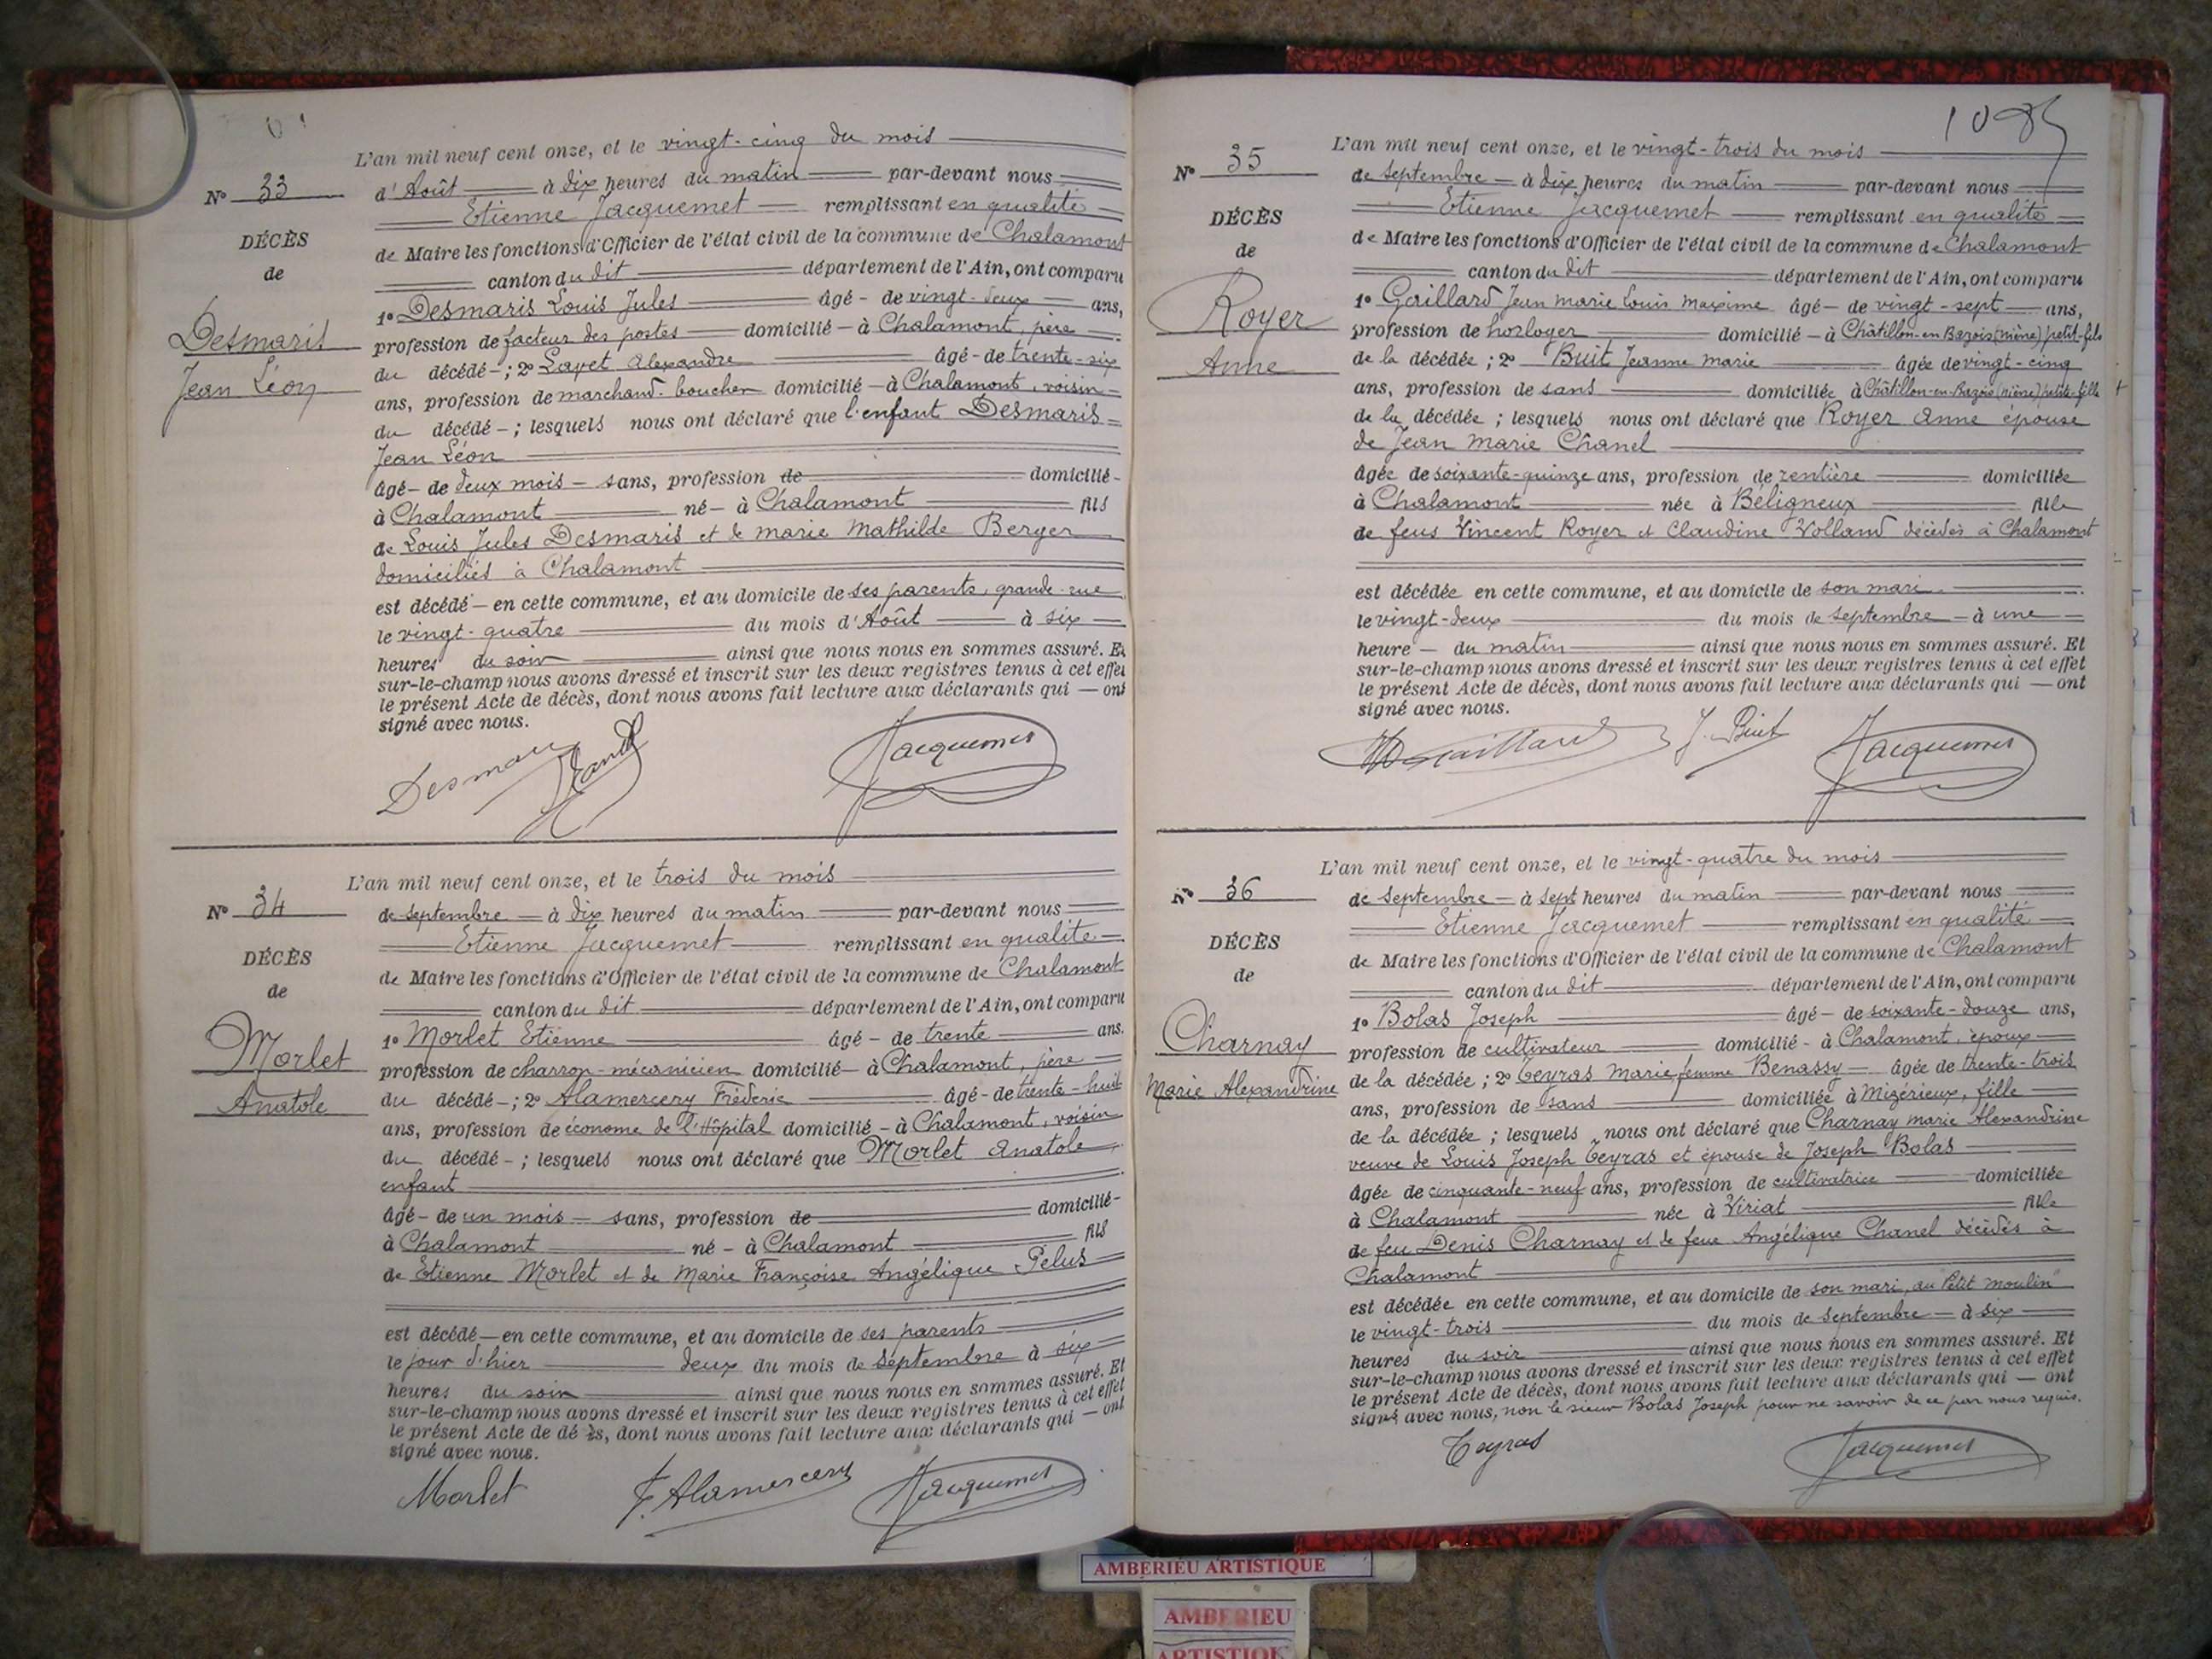 L'an mil neuf cent onze, et le vingt-cinq du mois
N° 33
d'Août à dix heures du matin par-devant nous
Etienne Jacquemet remplissant en qualité
DÉCÈS
de Maire les fonctions d'Officier de l'état civil de la commune de Chalamont
de
canton du dit département de l'Ain, ont comparu
1° Desmaris Louis Jules âgé de vingt-deux ans,
Desmaris
profession de facteur des postes domicilié à Chalamont, père
Jean Léon
du décédé ; 2° Alexandre âgé de trente-six
ans, profession de marchand-boucher domicilié à Chalamont, voisin
du décédé ; lesquels nous ont déclaré que l'enfant Desmaris
Jean Léon
âgé de deux mois sans, profession de domicilié
à Chalamont né à Chalamont fils
de Louis Jules Desmaris et de Marie Mathilde Berger
domiciliés à Chalamont
est décédé en cette commune, et au domicile de ses parents, grande rue
le vingt-quatre du mois d'Août à six
heures du soir ainsi que nous nous en sommes assuré. Et
sur-le-champ nous avons dressé et inscrit sur les deux registres tenus à cet effet
le présent Acte de décès, dont nous avons fait lecture aux déclarants qui ont
signé avec nous.
Desmaris Jacquemet
L'an mil neuf cent onze, et le trois du mois
N° 34
de septembre à dix heures du matin par-devant nous
Etienne Jacquemet remplissant en qualité
DÉCÈS
de Maire les fonctions d'Officier de l'état civil de la commune de Chalamont
de
canton du dit département de l'Ain, ont comparu
Morlet
1° Morlet Etienne âgé de trente ans.
profession de charron-mécanicien domicilié à Chalamont, père
Anatole
du décédé ; 2° Alamercery Fréderic âgé de trente-huit
ans, profession de économe de l'Hôpital domicilié à Chalamont, voisin
du décédé ; lesquels nous ont déclaré que Morlet Anatole,
enfant
âgé de un mois sans, profession de domicilié
à Chalamont né à Chalamont fils
de Etienne Morlet et de Marie Françoise Angélique Pélus
est décédé en cette commune, et au domicile de ses parents
le jour d'hier deux du mois de septembre à six
heures du soir ainsi que nous nous en sommes assuré. Et
sur-le-champ nous avons dressé et inscrit sur les deux registres tenus à cet effet
le présent Acte de dé ès, dont nous avons fait lecture aux déclarants qui ont
signé avec nous.
Morlet F. Alamercery Jacquemet
L'an mil neuf cent onze, et le vingt-trois du mois
N° 35
de septembre à dix heures du matin par-devant nous
DÉCÈS
Etienne Jacquemet remplissant en qualité
de
de Maire les fonctions d'Officier de l'état civil de la commune de Chalamont
canton du dit département de l'Ain, ont comparu
Royer
1° Gaillard Jean Marie Louis Maxime âgé de vingt-sept ans,
profession de horloger domicilié à Châtillon-en-Bazois (Nièvre) petit-fils
Anne
de la décédée ; 2° Buit Jeanne Marie âgée de vingt-cinq
ans, profession de sans domiciliée à Châtillon-en-Bazois (Nièvre) petite-fille
de la décédée ; lesquels nous ont déclaré que Royer Anne épouse
de Jean Marie Chanel
âgée de soixante-quinze ans, profession de rentière domiciliée
à Chalamont née à Béligneux fille
de feus Vincent Royer et Claudine Volland décédés à Chalamont
est décédée en cette commune, et au domicile de son mari
le vingt-deux du mois de septembre à une
heure du matin ainsi que nous nous en sommes assuré. Et
sur-le-champ nous avons dressé et inscrit sur les deux registres tenus à cet effet
le présent Acte de décès, dont nous avons fait lecture aux déclarants qui ont
signé avec nous.
Gaillard J. Buit Jacquemet
L'an mil neuf cent onze, et le vingt-quatre du mois
N° 36
de septembre à sept heures du matin par-devant nous
DÉCÈS
Etienne Jacquemet remplissant en qualité
de
de Maire les fonctions d'Officier de l'état civil de la commune de Chalamont
canton du dit département de l'Ain, ont comparu
Charnay
1° Bolas Joseph âgé de soixante-douze ans,
profession de cultivateur domicilié à Chalamont, époux
Marie Alexandrine
de la décédée ; 2° Ceyras Marie femme Benassy âgée de trente-trois
ans, profession de sans domiciliée à Mizérieux, fille
de la décédée ; lesquels nous ont déclaré que Charnay Marie Alexandrine
veuve de Louis Joseph Ceyras et épouse de Joseph Bolas
âgée de cinquante-neuf ans, profession de cultivatrice domiciliée
à Chalamont née à Viriat fille
de feu Denis Charnay et de feue Angélique Chanel décédés à
Chalamont
est décédée en cette commune, et au domicile de son mari, au "Petit moulin"
le vingt-trois du mois de septembre à six
heures du soir ainsi que nous nous en sommes assuré. Et
sur-le-champ nous avons dressé et inscrit sur les deux registres tenus à cet effet
le présent Acte de décès, dont nous avons fait lecture aux déclarants qui ont
signé avec nous, non le sieur Bolas Joseph pour ne savoir de ce par nous requis.
Ceyras Jacquemet
AMBERIEU ARTISTIQUE
AMBERIEU
ARTISTIQUE